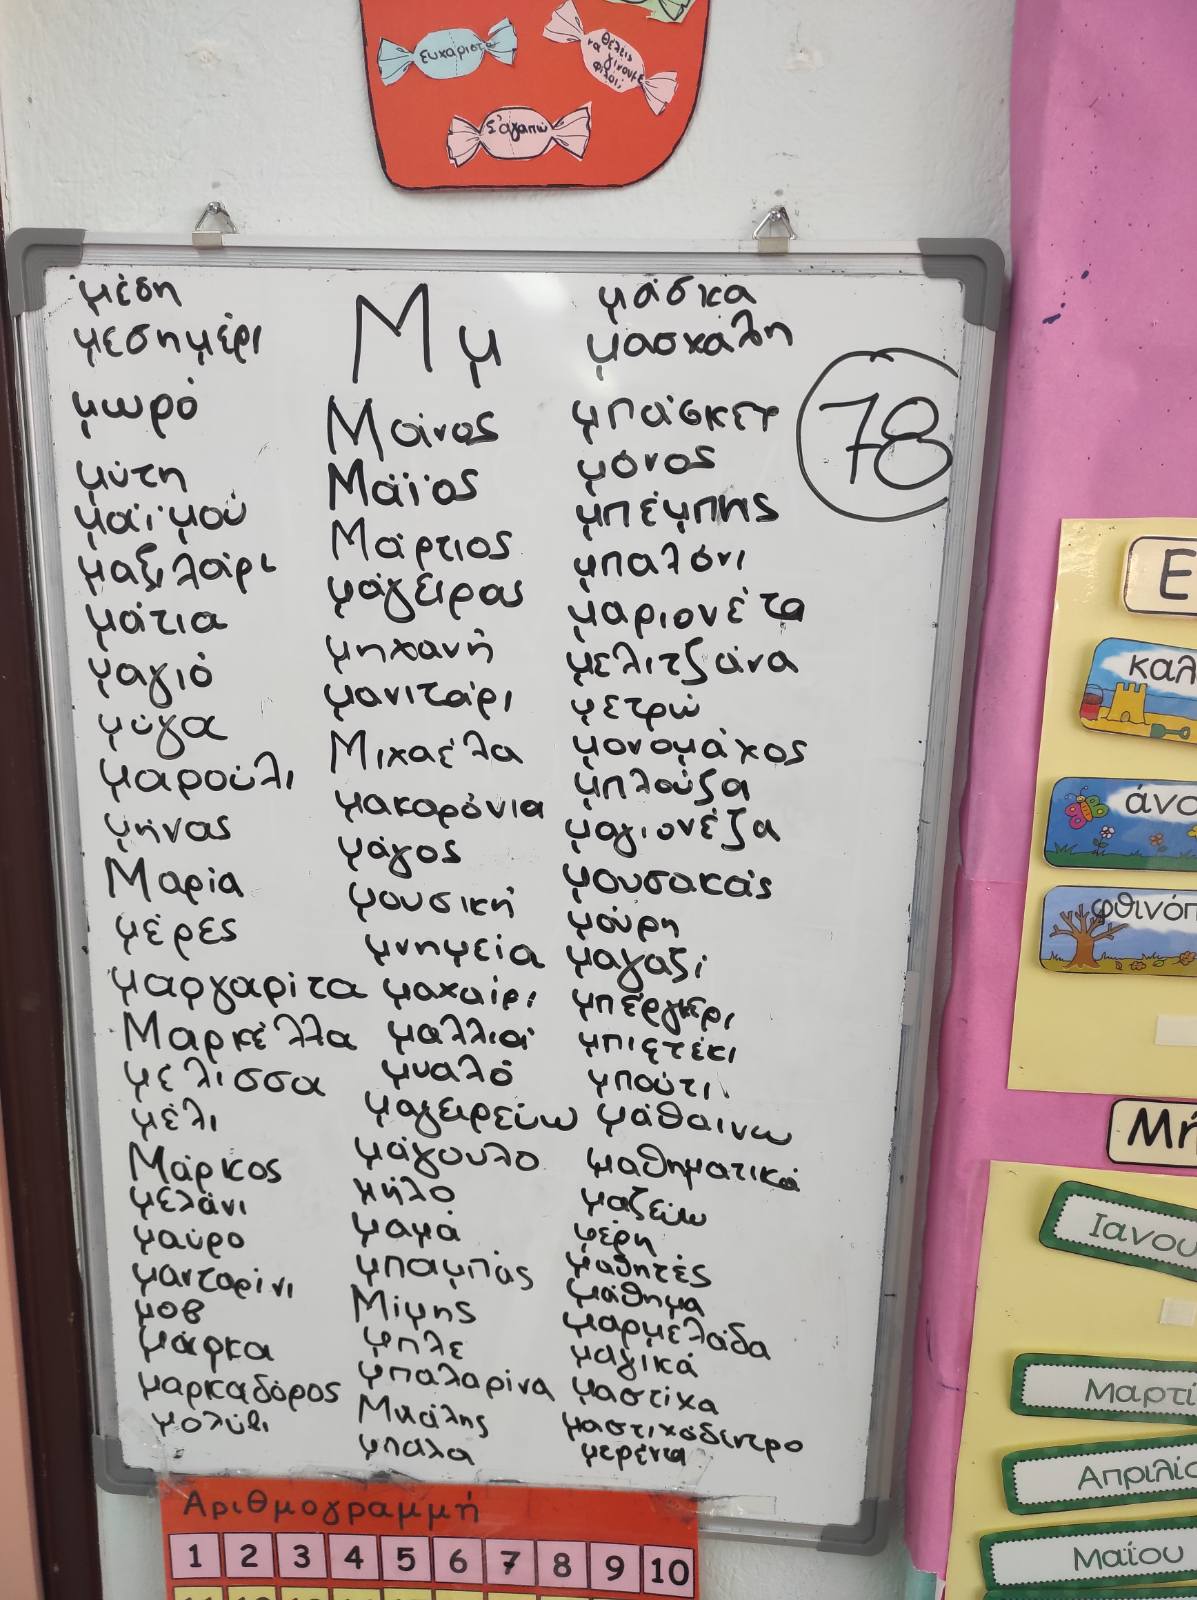 ευχαριστώ
να θέλεις
γίνουμε
φίλοι;
Σ'αγαπώ
Μμ
78
μέδη
μεσημέρι
μωρό
μύτη
μαϊμού
μαξιλάρι
μάτια
μαγιό
μύγα
μαρούλι
μήνας
Μαρία
μέρες
μαργαρίτα
Μαρκέλλα
μέλισσα
μέλι
Μάρκος
μελάνι
μαύρο
μανταρίνι
μοβ
μάρκα
μαρκαδόρος
μολύβι
Μάνος
Μάϊος
Μάρτιος
μάγειρας
μηχανή
μανιτάρι
Μιχαέλα
μακαρόνια
μάγος
μουσική
μνημεία
μαχαίρι
μαλλιά
μυαλό
μαγειρεύω
μάγουλο
μήλο
μαμά
μπαμπάς
Μίμης
μπλε
μπαλαρίνα
Μιχάλης
μπάλα
μάσκα
μασχάλη
μπάσκετ
μόνος
μπέμπης
μπαλόνι
μαριονέτα
μελιτζάνα
μετρώ
μονομάχος
μπλούζα
μαγιονέζα
μουσακάς
μούρη
μαγαζί
μπέργκερι
μπιφτέκι
μπούτι
μάθαινω
μαθηματικά
μαζεύω
μέρη
μαθητές
μάθημα
μαρμελάδα
μαγικά
μαστίχα
μαστιχόδεντρο
μερέντα
Αριθμογραμμή
1 2 3 4 5 6 7 8 9 10
Ε
καλ
άνο
φθινόπ
Μή
Ιανου
Μαρτί
Απριλίο
Μαΐου